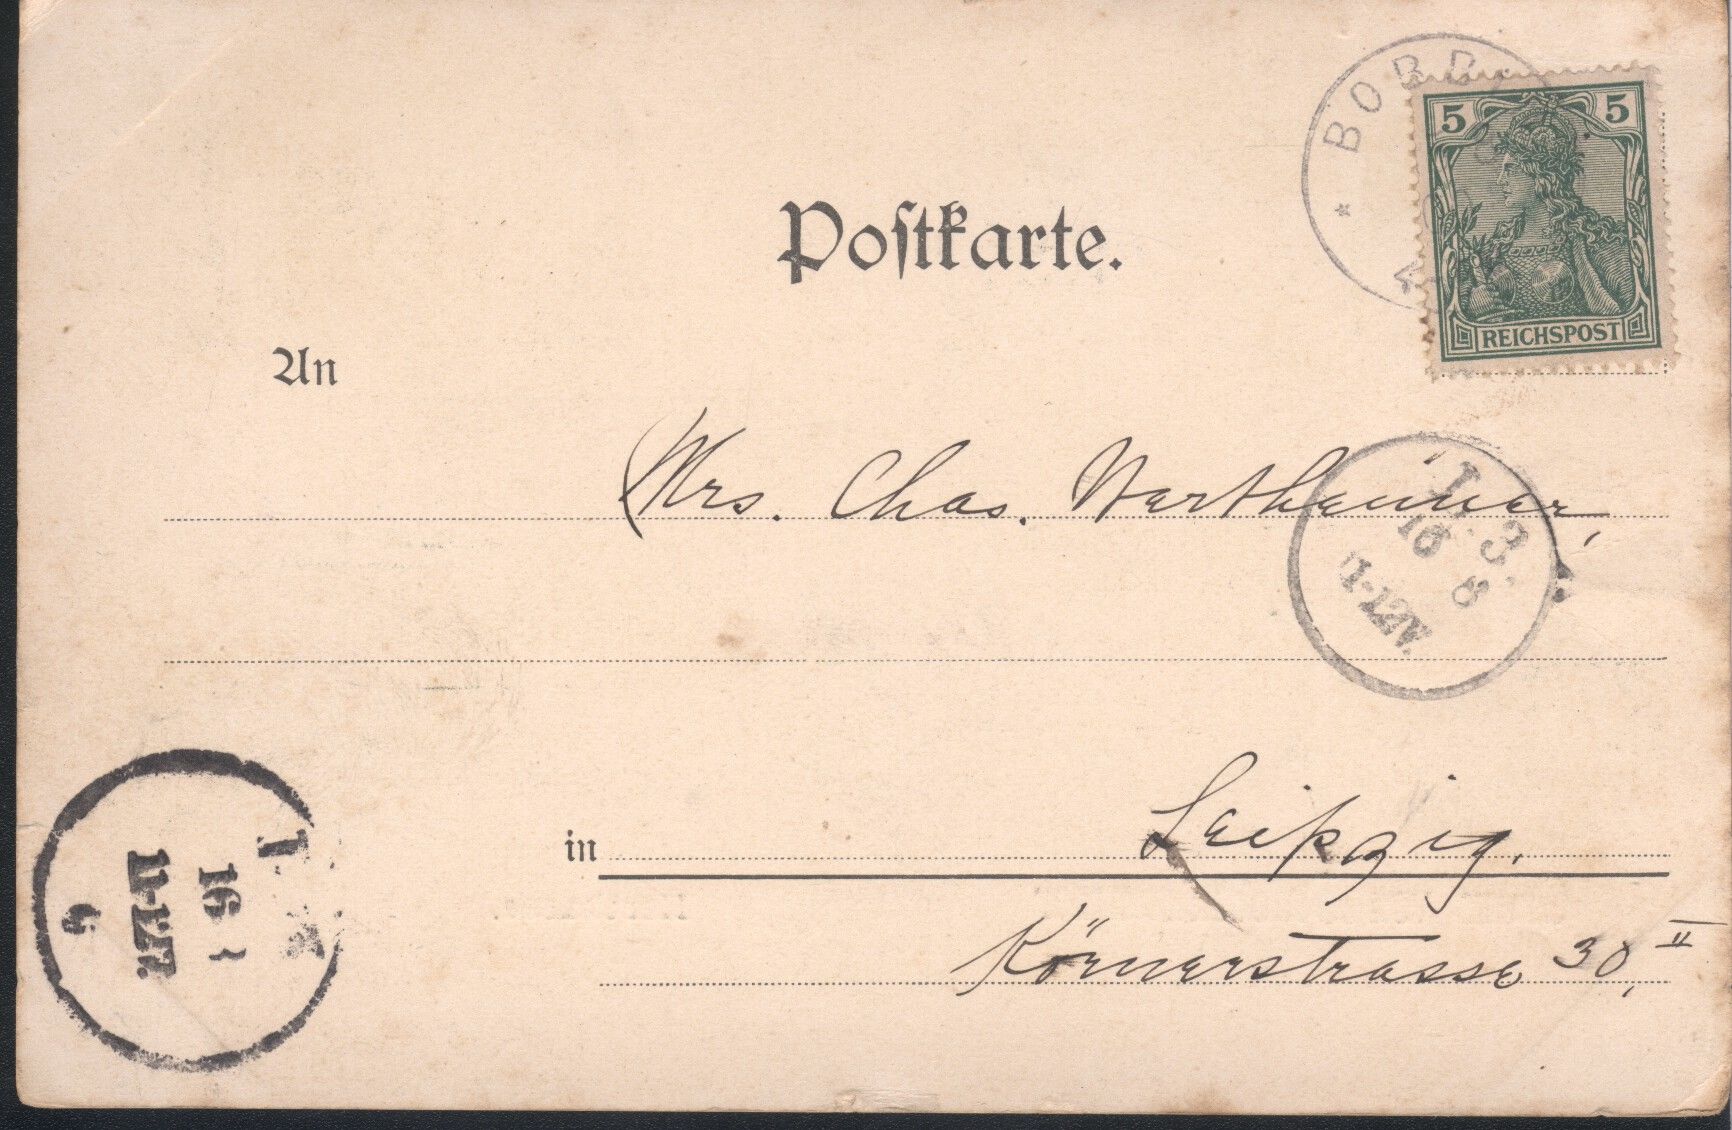 BORD
5 5
REICHSPOST
Postkarte.
An
Mrs. Chas. Wertheimer,
L. 3.
16 8
11-12V.
in Leipzig.
Körnerstrasse 30, II
L
16
11-12V.